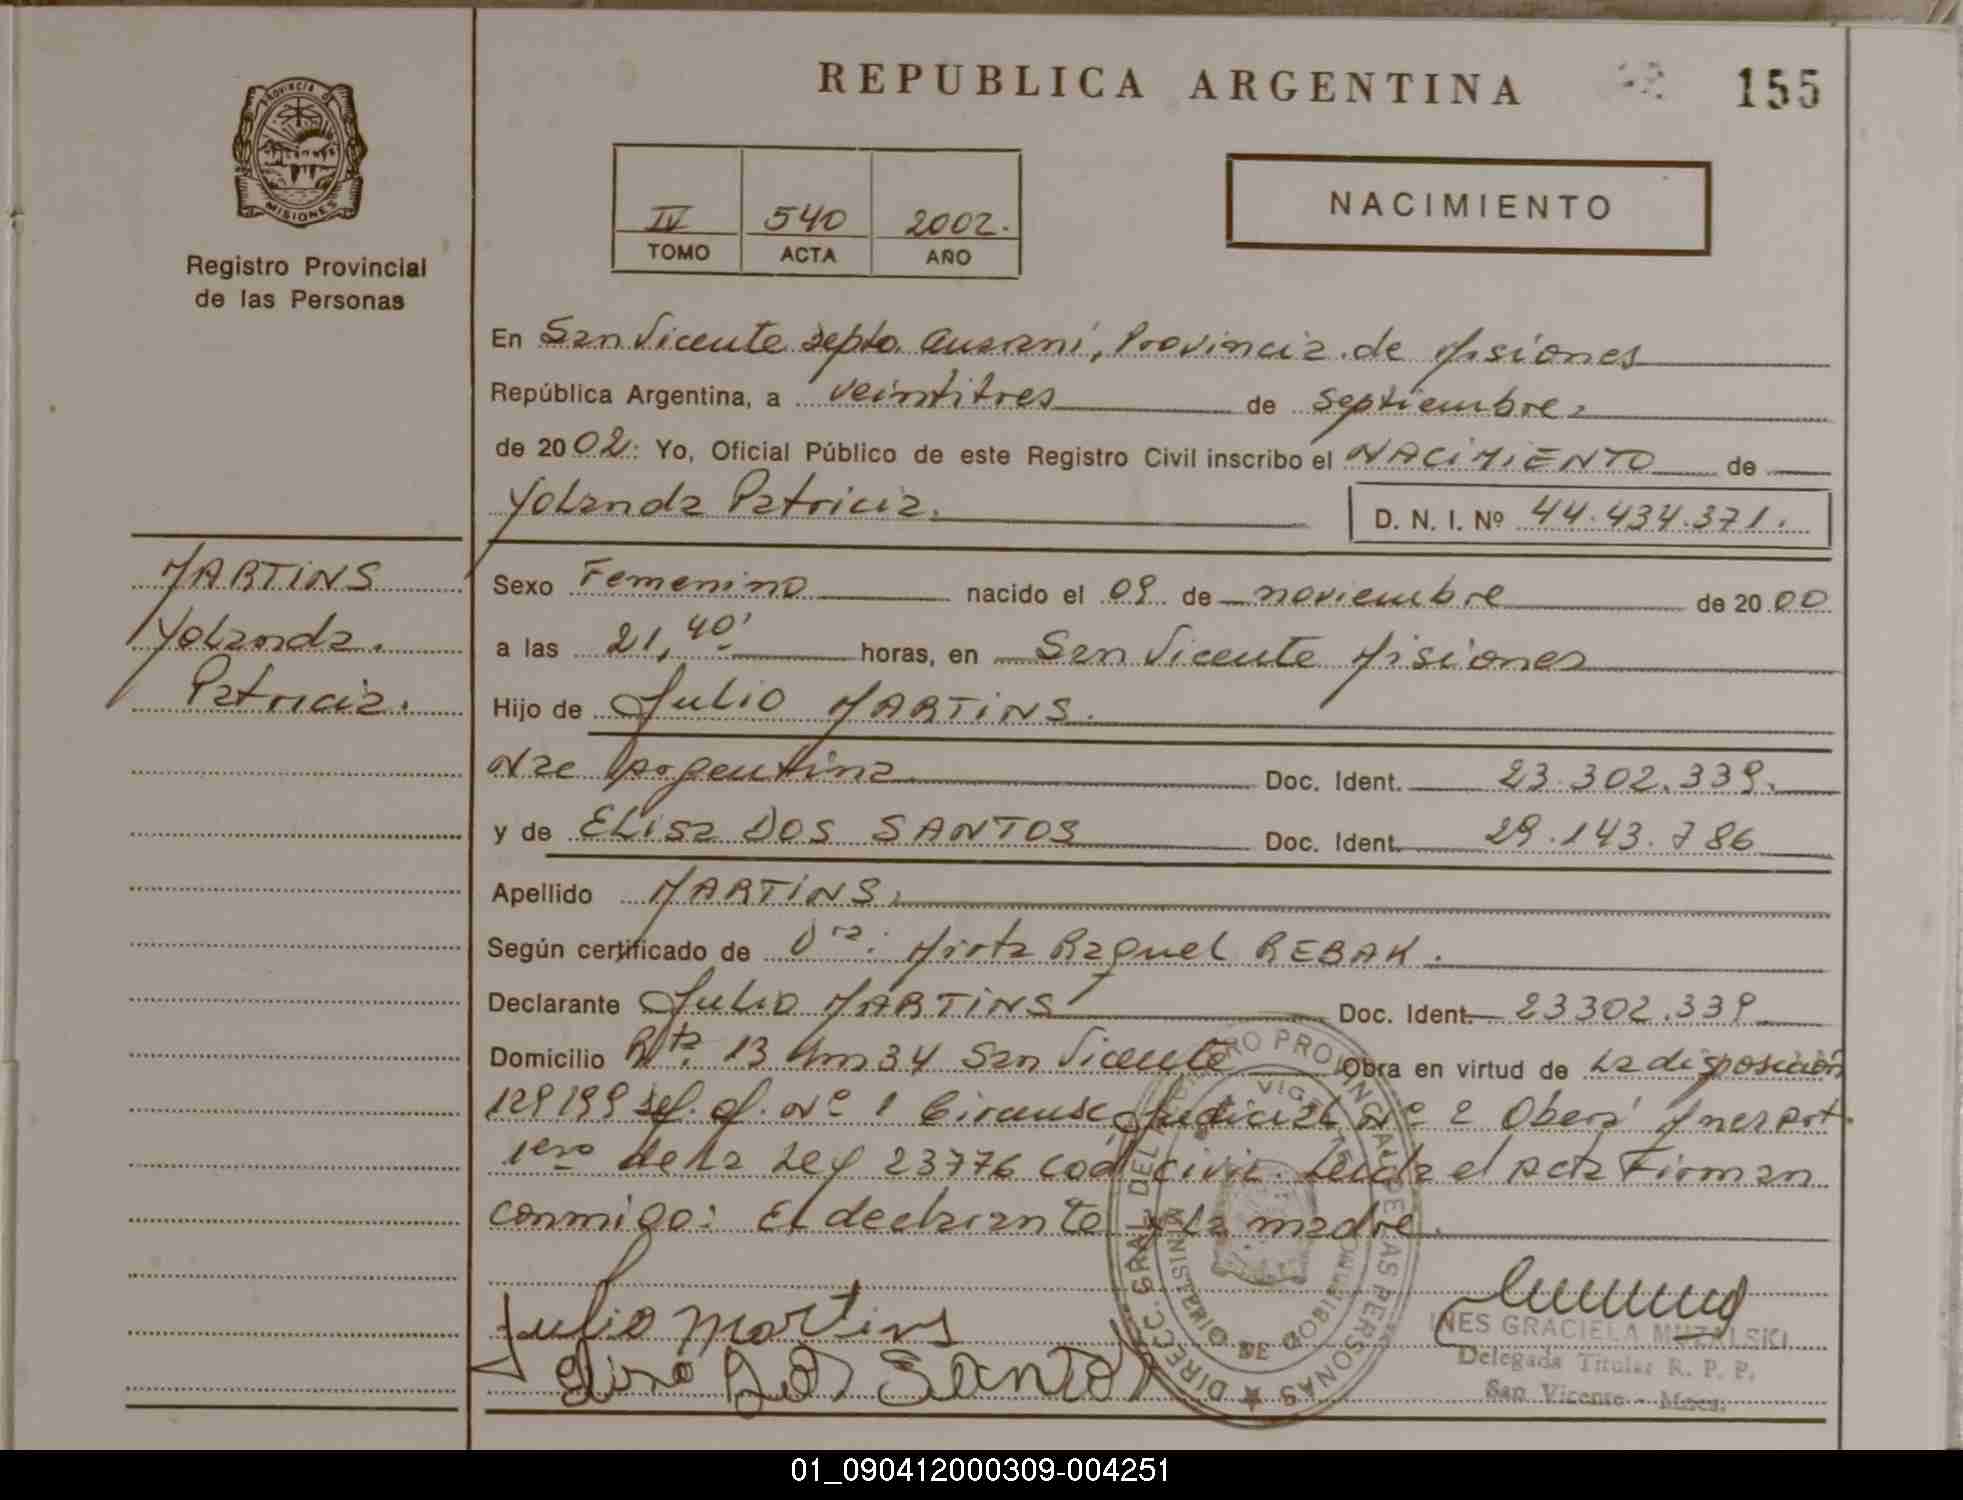 REPUBLICA ARGENTINA
155
PROVINCIA DE MISIONES
Registro Provincial
de las Personas
IV 540 2002.
TOMO ACTA AÑO
NACIMIENTO
En San Vicente Depto. Guaraní, Provincia de Misiones
República Argentina, a veintitres de Septiembre.
de 2002: Yo, Oficial Público de este Registro Civil inscribo el NACIMIENTO de
Yolanda Patricia.
D. N. I. Nº 44.434.371.
MARTINS
Yolanda.
Patricia.
Sexo Femenino nacido el 09 de noviembre de 2000
a las 21,40' horas, en San Vicente Misiones
Hijo de Julio MARTINS.
Nac Argentina Doc. Ident. 23.302.339.
y de ELISA DOS SANTOS Doc. Ident. 29.143.786
Apellido MARTINS.
Según certificado de Dra: Mirta Raquel REBAK.
Declarante Julio MARTINS Doc. Ident. 23302.339
Domicilio Rta. 13 Km 34 San Vicente Obra en virtud de La disposición
129199 Nº 1 Circunsc Judicial Nº 2 Oberá Art.
1ero de La Ley 23776 cod civil. Leida el acta Firman
conmigo: El declarante y La madre.
Julio Martins
Elisa Dos Santos
DIRECC. GRAL. DEL REGISTRO PROVINCIAL DE LAS PERSONAS
MINISTERIO DE GOBIERNO
INES GRACIELA MUZALSKI
Delegada Titular R. P. P.
San Vicente - Mnes.
01_090412000309-004251